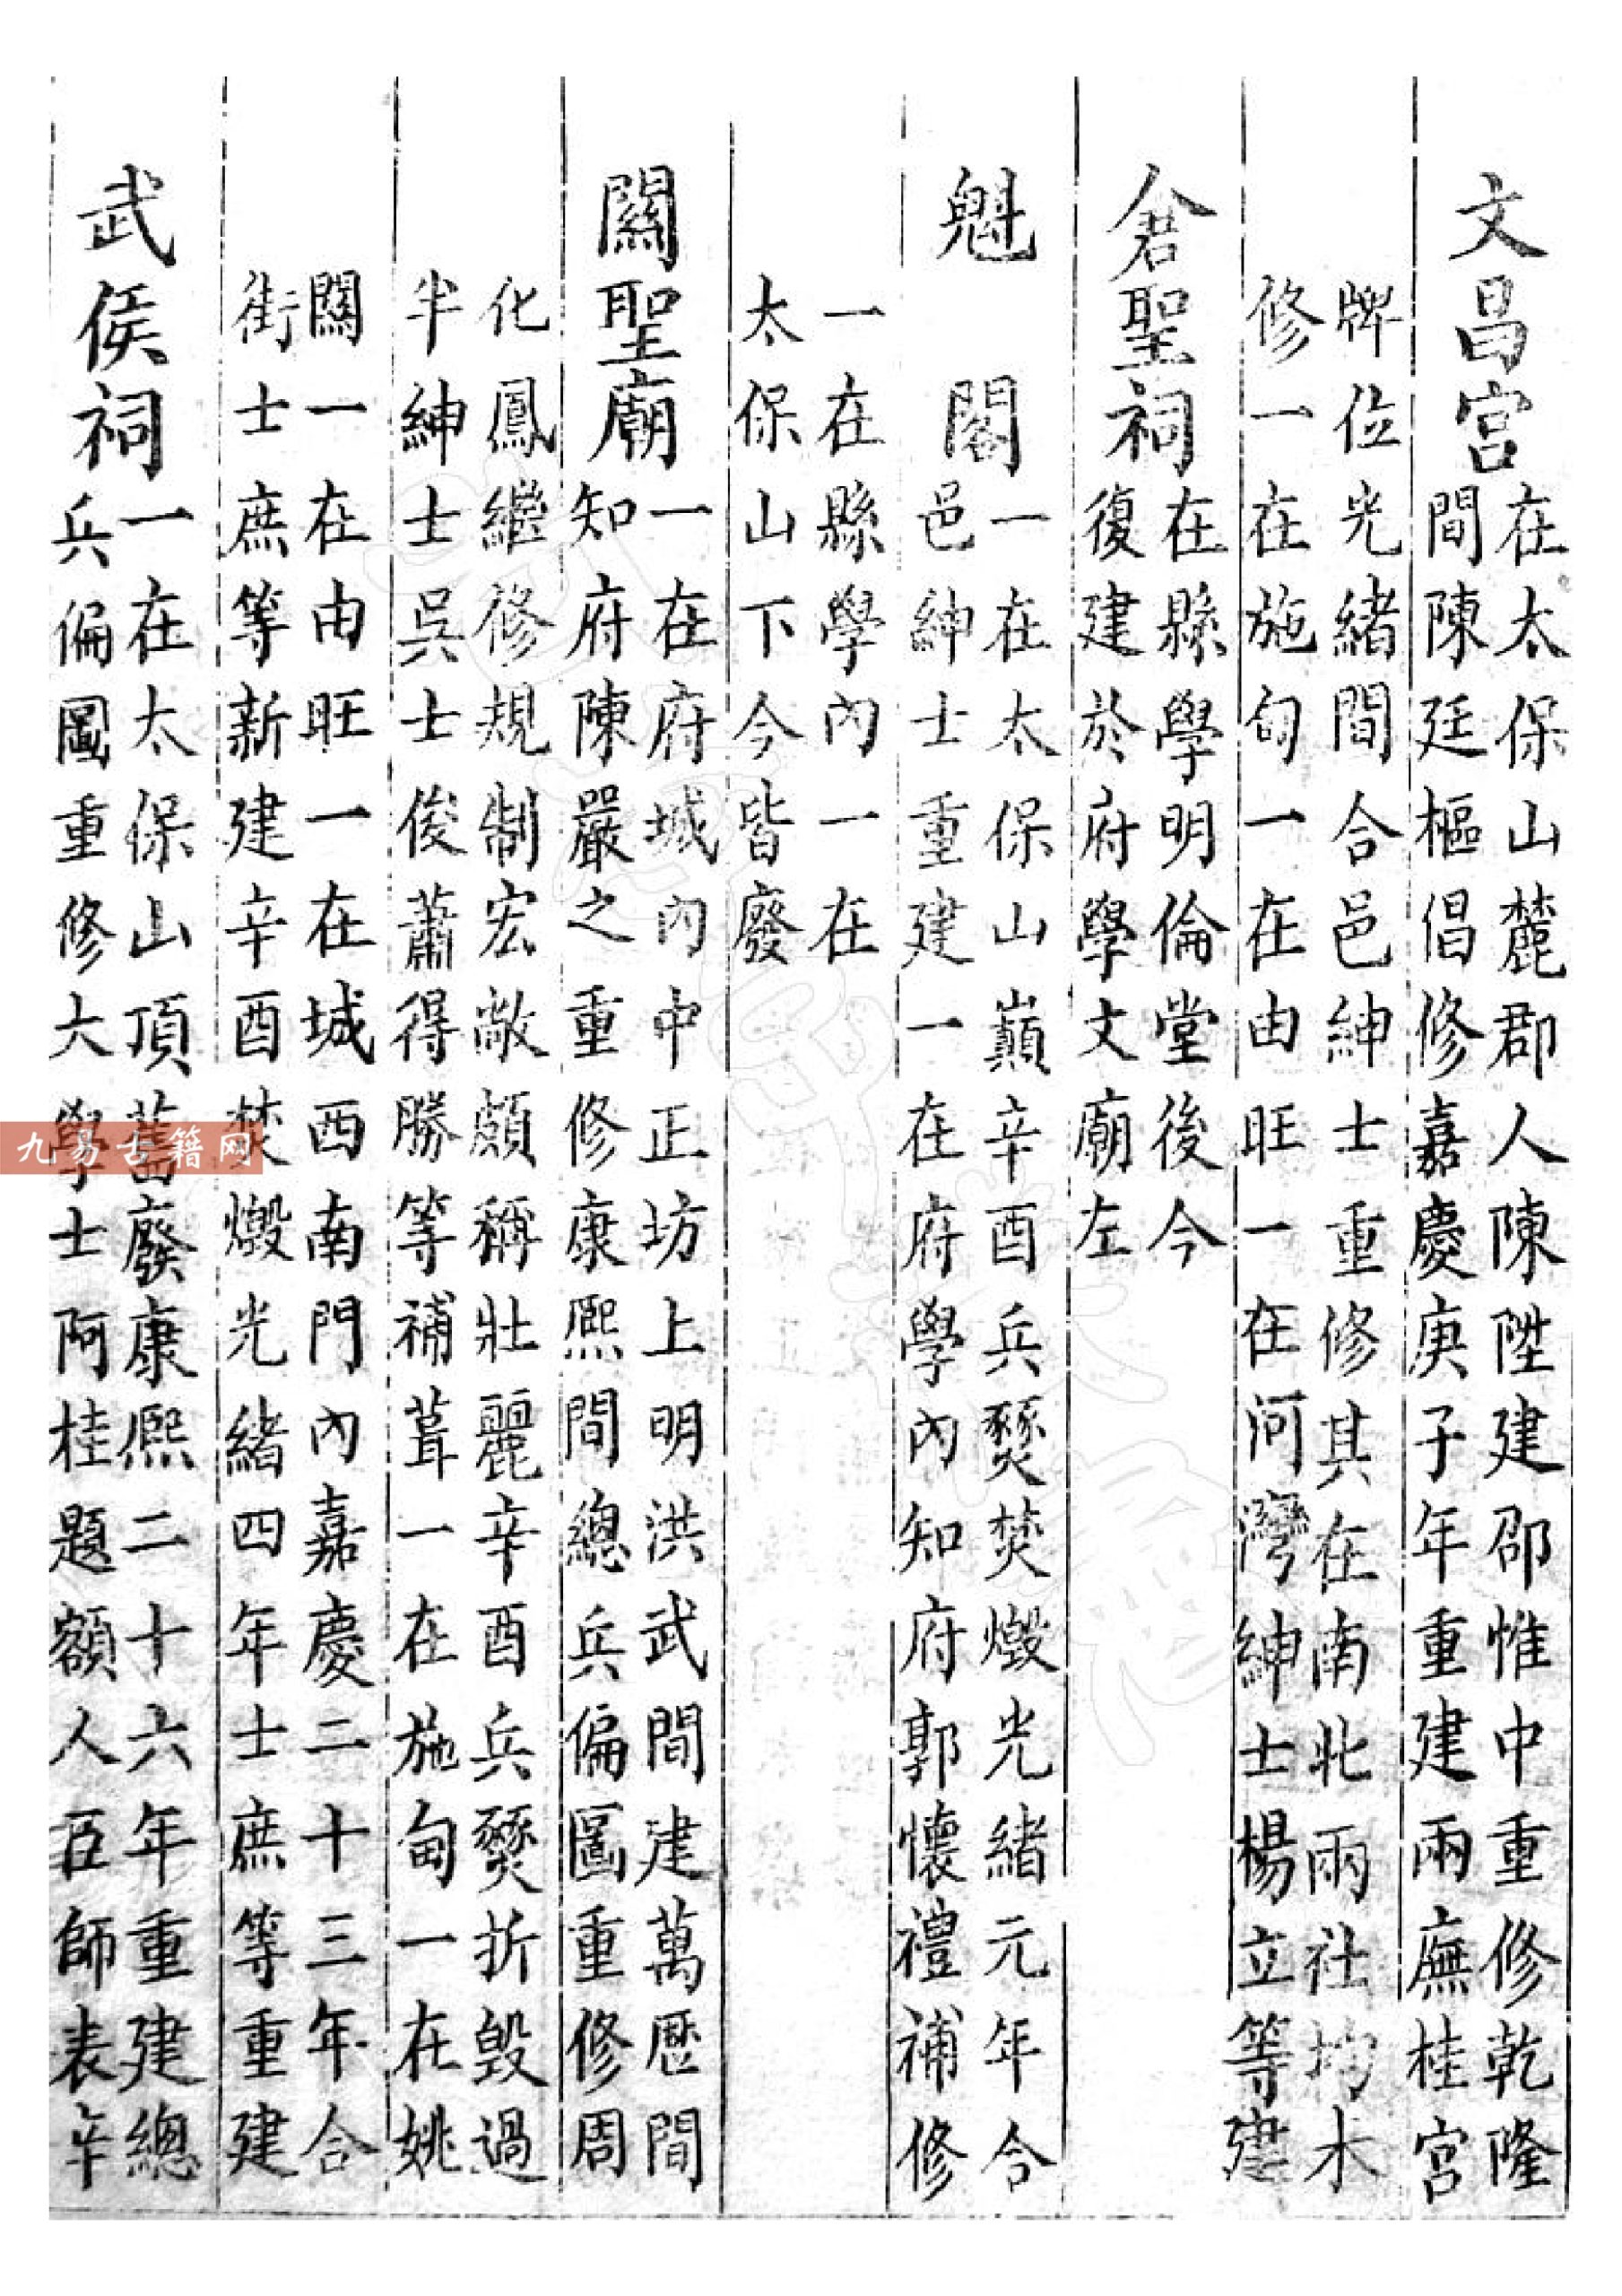 文昌宮
在太保山麓郡人陳陞建邵惟中重修乾隆
間陳廷樞倡修嘉慶庚子年重建兩廡桂宮
牌位光緒間合邑紳士重修其在南北兩社均木
修一在施甸一在由旺一在河灣紳士楊立等建
倉聖祠
在縣學明倫堂後今
復建於府學文廟左
魁閣
一在太保山巔辛酉兵燹焚燬光緒元年合
邑紳士重建一在府學內知府郭懷禮補修
一在縣學內一在
太保山下今皆廢
關聖廟
一在府城內中正坊上明洪武間建萬歷間
知府陳嚴之重修康熙間總兵偏圖重修周
化鳳繼修規制宏敞頗稱壯麗辛酉兵燹折毀過
半紳士吳士俊蕭得勝等補葺一在施甸一在姚
關一在由旺一在城西南門內嘉慶二十三年合
街士庶等新建辛酉焚燬光緒四年士庶等重建
武侯祠
一在太保山頂舊廢康熙二十六年重建總
兵偏圖重修大學士阿桂題額人臣師表辛
九易古籍网